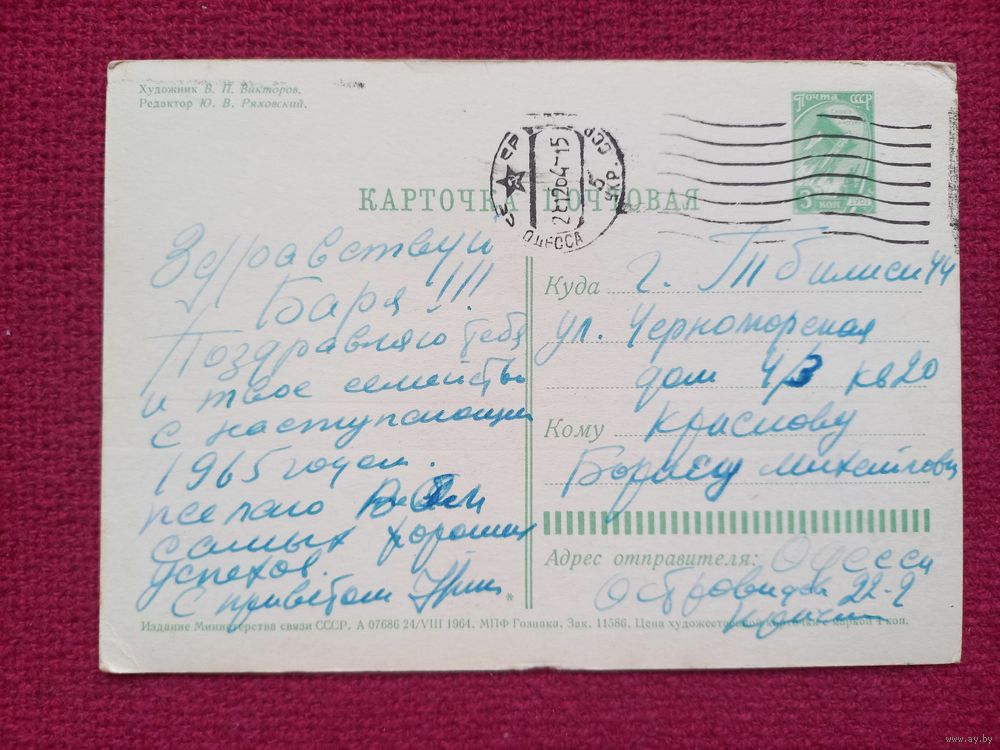 Художник В. П. Викторов.
Редактор Ю. В. Ряховский.
Почта СССР
3 коп
1961
28 12 64-15
ОДЕССА
УКР. ССР
5
КАРТОЧКА ПОЧТОВАЯ
Здравствуй
Баря!!!
Поздравляю тебя
и твое семейство
с наступающим
1965 годом.
желаю Вам
самых хороших
успехов.
С приветом
Куда г. Тбилиси 44
ул. Черноморская
дом 4/3 кв 20
Кому Краснову
Борису Михайлову
Адрес отправителя: Одесса
22-2
Издание Министерства связи СССР. А 07686 24/VIII 1964. МПФ Гознака. Зак. 11586. Цена художественной карточки с маркой 4 коп.
www.ay.by